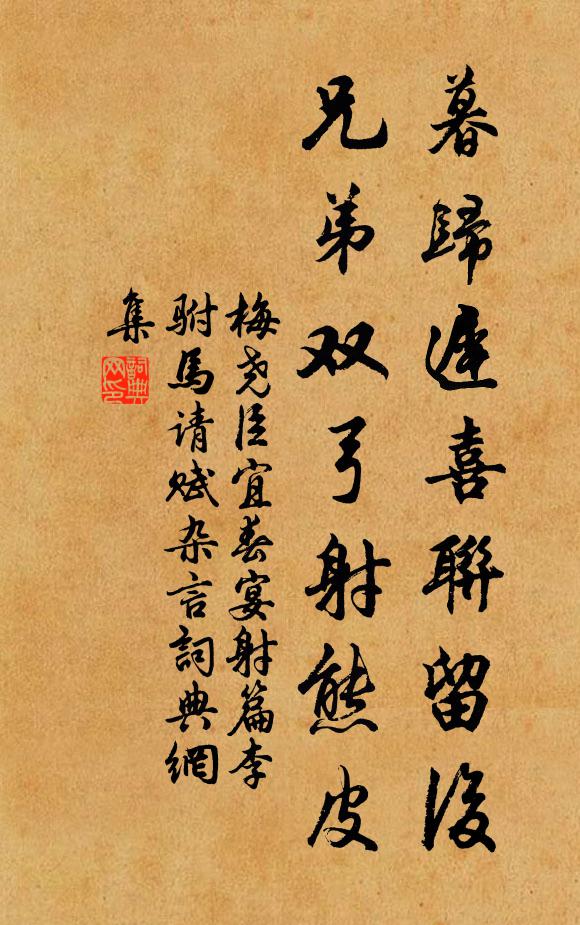 暮歸遅喜聯留後
兄弟双弓射熊皮
梅尧臣宜春宴射篇李
駙馬请赋杂言詞典網
集
詞典
网印